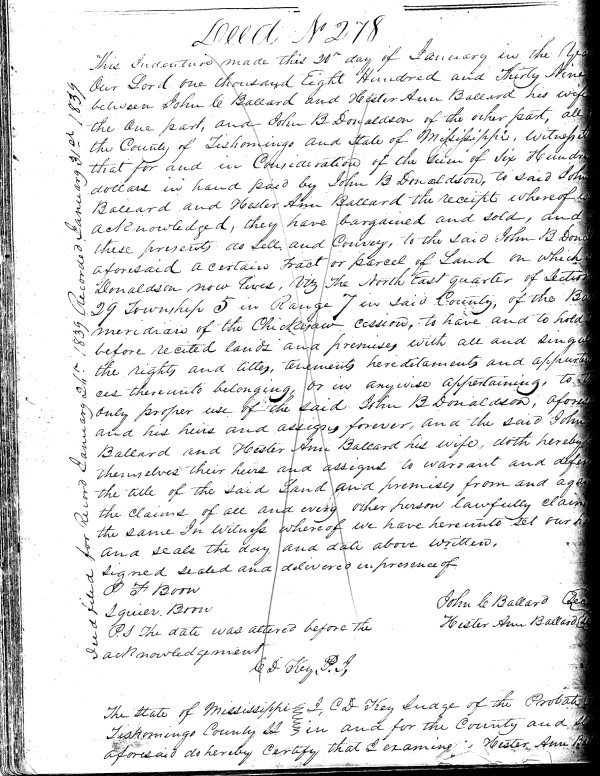 Deed No 278
This Indenture made this 20th day of January in the Yea
Our Lord one thousand Eight Hundred and Thirty Nine
between John C Ballard and Hester Ann Ballard his wife
the One part, and John B Donaldson of the other part, all
the County of Tishomingo and State of Missisippi, Witness
that for and in Consideration of the Sum of Six Hundr
dollars in hand paid by John B Donaldson, to said John
Ballard and Hester Ann Ballard the receipt whereof
acknowledged, they have bargained and sold, and
these presents do Sell and Convey, to the said John B Don
aforesaid a certain Tract or parcel of Land on which
Donaldson now lives, Viz The North East quarter of Section
29 Township 5 in Range 7 in said County, of the Ba
meridian of the Chickasaw cession, to have and to hold
before recited lands and premises with all and singu
the rights and titles, tenements hereditaments and appurt
ces thereunto belonging or in anywise appertaining, to
only proper use of the said John B Donaldson, afores
and his heirs and assigns forever, and the said John
Ballard and Hester Ann Ballard his wife, doth hereby
themselves their heirs and assigns to warrant and defen
the title of the said Land and premises from and again
the claims of all and every other person lawfully claim
the same In Witness whereof we have hereunto set our
and seals the day and date above written.
signed sealed and delivered in presence of
P F Boon
Squier Boon
John C Ballard Sea
Hester Ann Ballard
PS The date was altered before the
acknowledgement
C D Key P. J,
The State of Mississippi I, C D Key Judge of the Probate
Tishomingo County in and for the County and
aforesaid do hereby Certify that I examine Hester Ann B
filed for Record January 24th 1839 Recorded January 31st 1839